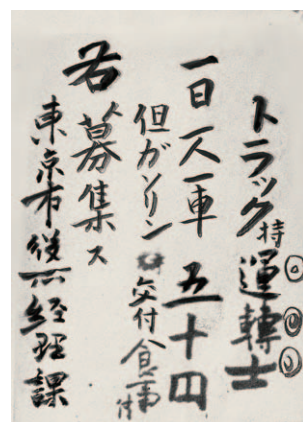 トラック持運轉士◎◎◎
一日一人一車 五十四
但ガソリン 交付 食事付
右募集ス
東京市役所経理課